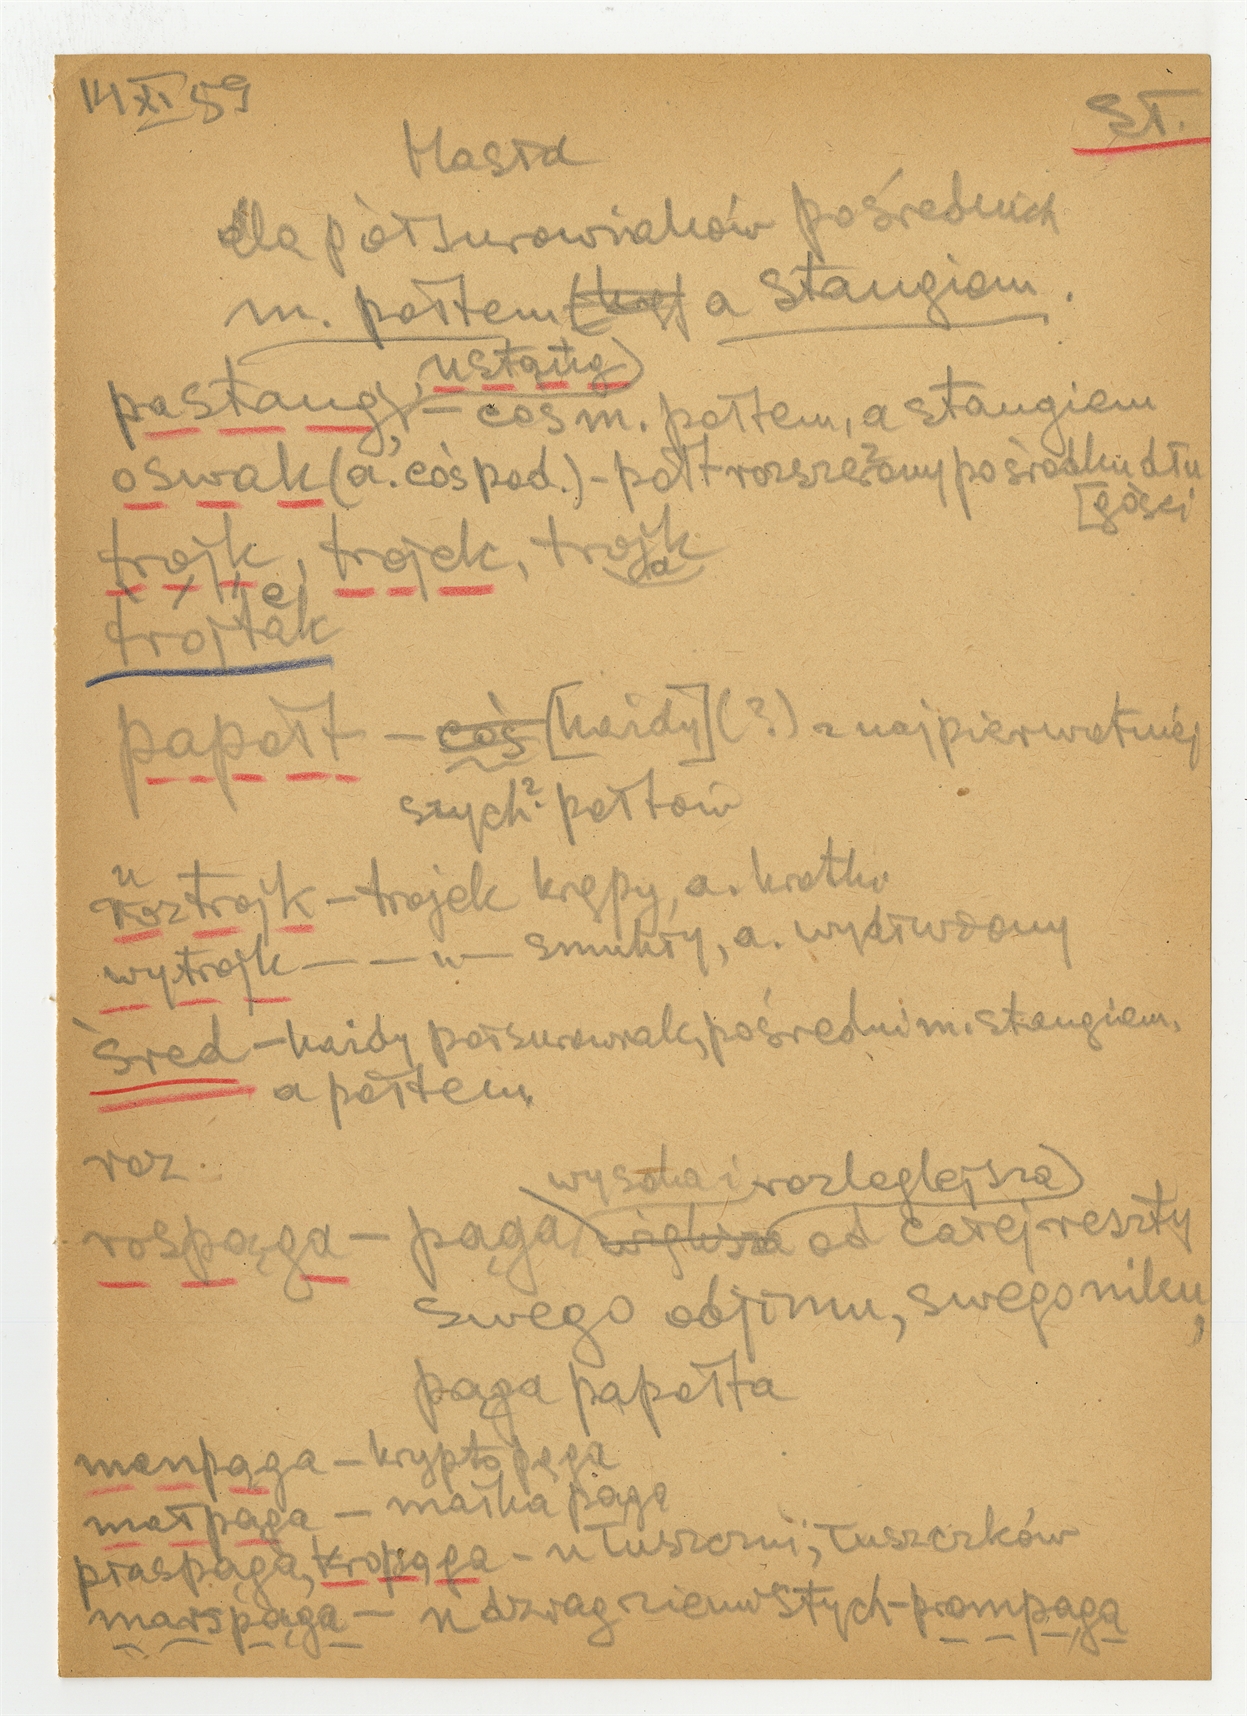 14 XI 59
ST.
Hasła
dla półsurowiaków pośrednich
m. połtem a stangiem.
ustang
postang, – coś m. połtem, a stangiem
oswak (a. coś pod.) – połt rozszerzony pośrodku dłu
[gości
trojk, trojek, trojk
a
e
trojtak
papołt – coś [każdy] (?) z najpierwotniej
szych? połtów
u
roztrojk – trojek krępy, a. krótki
wytrojk – – „ – smukły, a. wydłużony
śred – każdy półsurowiak, pośredni m. stangiem,
a połtem.
roz.
wysoka i rozleglejsza
rospąga – pąga większa od całej reszty
swego objimu, swego niku,
pąga papołta
manpąga – kryptopąga
małpąga – małka pąga
płaspąga, kropąga – u tuszczni, tuszczków
marspąga – u dzwag ziemistych – prompąga